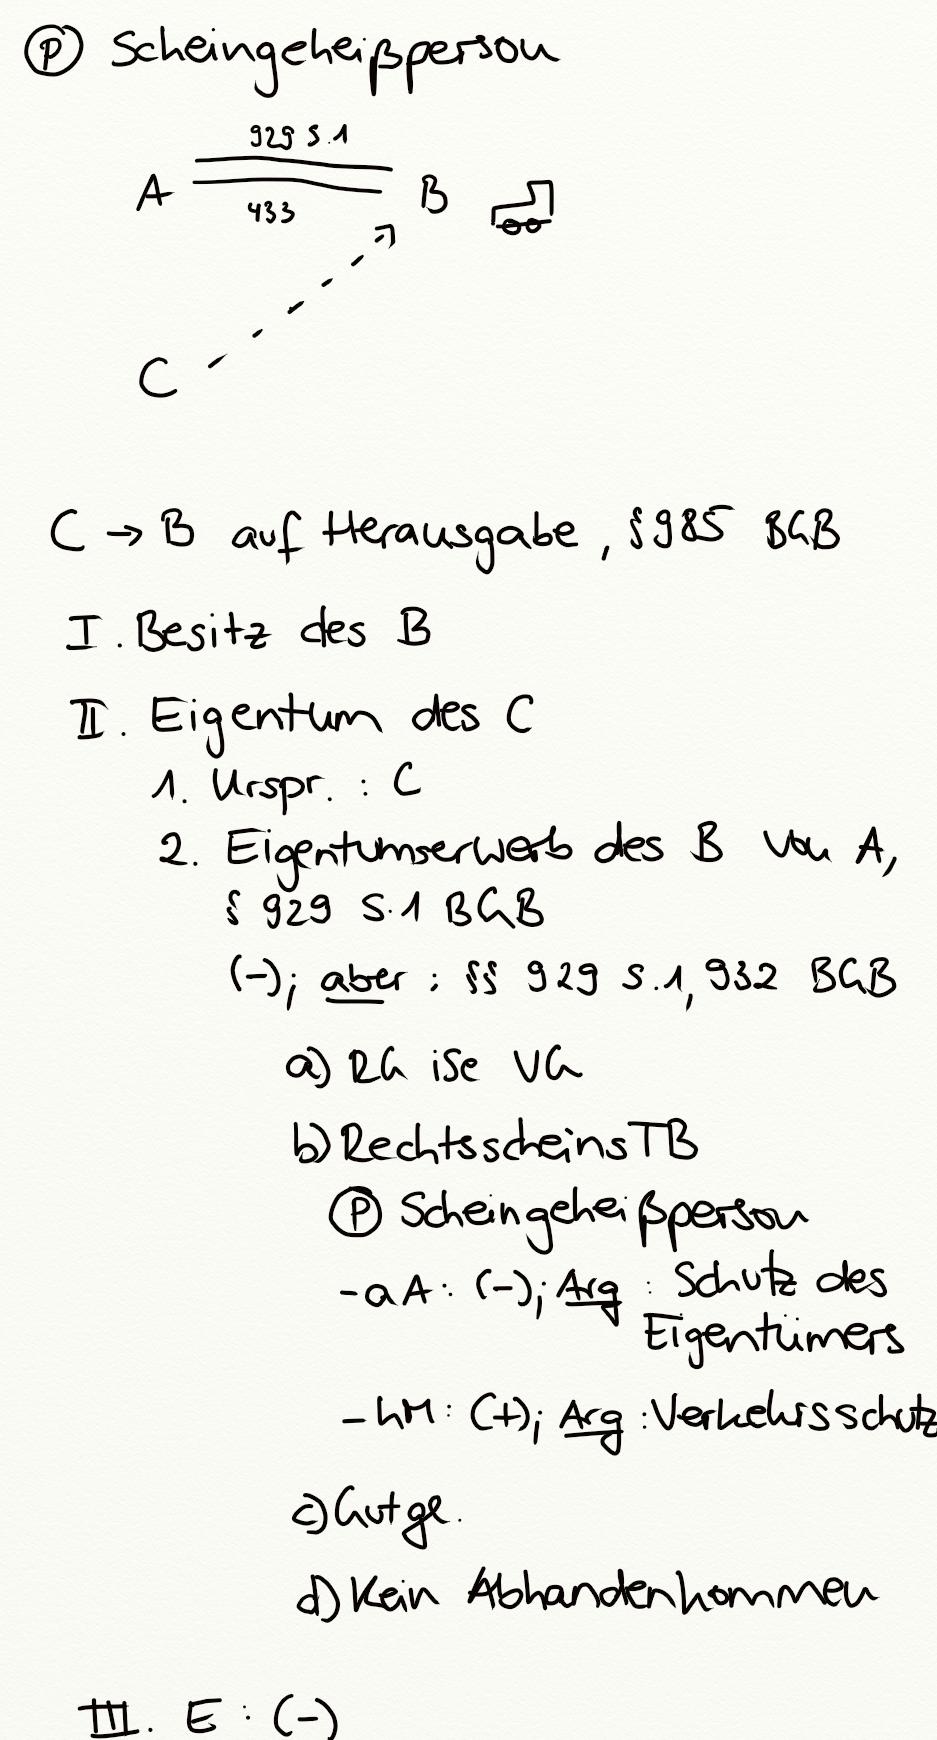 Ⓟ Scheingeheißperson
929 S.1
A B
433
C
C → B auf Herausgabe, § 985 BGB
I. Besitz des B
II. Eigentum des C
1. Urspr. : C
2. Eigentumserwerb des B von A,
§ 929 S.1 BGB
(-); aber : §§ 929 S.1, 932 BGB
a) RG iSe VG
b) RechtsscheinsTB
Ⓟ Scheingeheißperson
- aA: (-); Arg : Schutz des
Eigentümers
- hM: (+); Arg : Verkehrsschutz
c) Gutgl.
d) Kein Abhandenkommen
III. E : (-)